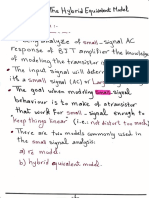 The Hybrid Equivalent Model
being analyze of small-signal AC
response of BJT amplifier the knowledge
of modeling the transistor is
• The input signal will determine
it's a small signal (AC) or Large
• The goal when modeling small-signal
behaviour is to make of a transistor
that work for small-signal enough to
"keep things linear" (i.e.: not distort too much)
• There are two models commonly used in
the small signal analysis:
a) re model.
b) hybrid equivalent model.